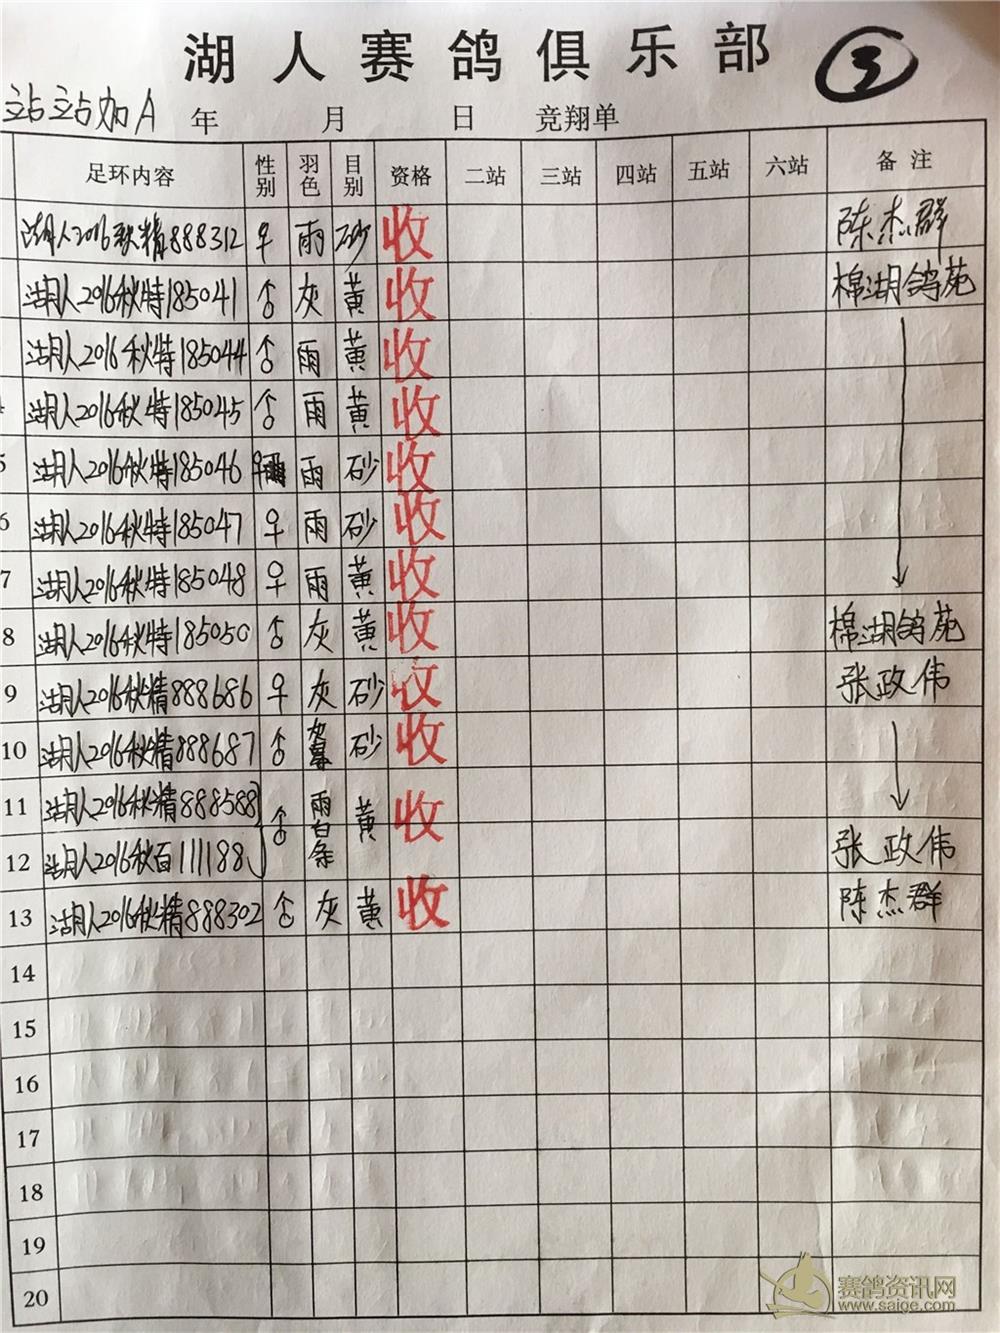 湖人赛鸽俱乐部 ③
站站加A 年 月 日 竞翔单
足环内容 性别 羽色 目别 资格 二站 三站 四站 五站 六站 备注
湖人2016秋精888312 ♀ 雨 砂 收 陈杰群
湖人2016秋特185041 ♂ 灰 黄 收 棉湖鸽苑
湖人2016秋特185044 ♂ 雨 黄 收
4 湖人2016秋特185045 ♂ 雨 黄 收
5 湖人2016秋特185046 ♀ 雨 砂 收
6 湖人2016秋特185047 ♀ 雨 砂 收
7 湖人2016秋特185048 ♀ 雨 黄 收
8 湖人2016秋特185050 ♂ 灰 黄 收 棉湖鸽苑
9 湖人2016秋精888686 ♀ 灰 砂 收 张政伟
10 湖人2016秋精888687 ♂ 砂 收
11 湖人2016秋精888588 ♂ 雨白条 黄 收
12 湖人2016秋百111188 张政伟
13 湖人2016秋精888302 ♂ 灰 黄 收 陈杰群
14
15
16
17
18
19
20
赛鸽资讯网
www.saige.com